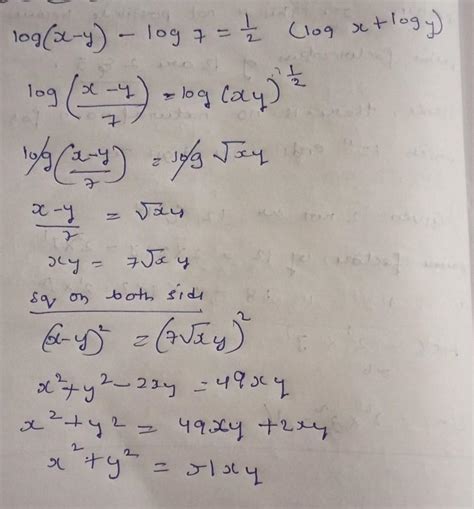 log(x-y) - log 7 = 1/2 (log x + log y)
log((x-y)/7) = log (xy)^1/2
log((x-y)/7) = log √xy
(x-y)/7 = √xy
xy = 7√xy
sq on both side
(x-y)² = (7√xy)²
x²+y²-2xy = 49xy
x²+y² = 49xy + 2xy
x²+y² = 51xy